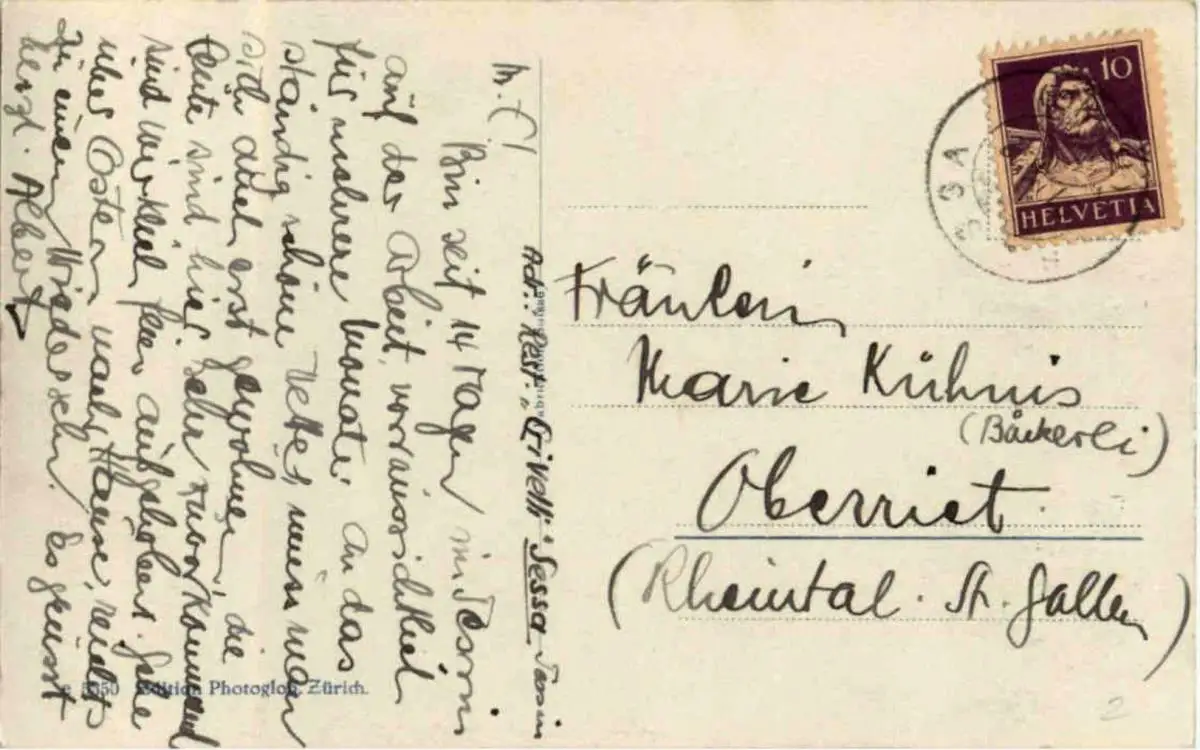 M. C!
Bin seit 14 Tagen im Tessin
auf der Arbeit, vorraussichtlich
für mehrere Monate. An das
ständig schöne Wetter, muss man
sich auch erst gewöhnen, die
Leute sind hier sehr zuvorkommend
sind wirklich fein aufgehoben. Gehe
über Ostern nach Hause, reichts
zu einem Wiedersehn. Es grüsst
herzl. Albert
Adr.: Rest. Crivelli Sessa Tessin
5350 Edition Photoglob, Zürich.
10
HELVETIA
Fräulein
Marie Kühnis
(Bäckerei)
Oberriet
(Rheintal. St. Gallen)
2